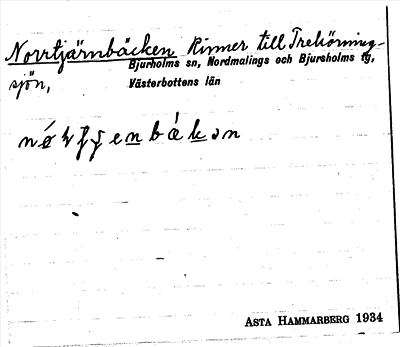 Norrtjärnbäcken Rinner till Trehörning-
Bjurholms sn, Nordmalings och Bjursholms tg,
sjön,
Västerbottens län
ASTA HAMMARBERG 1934